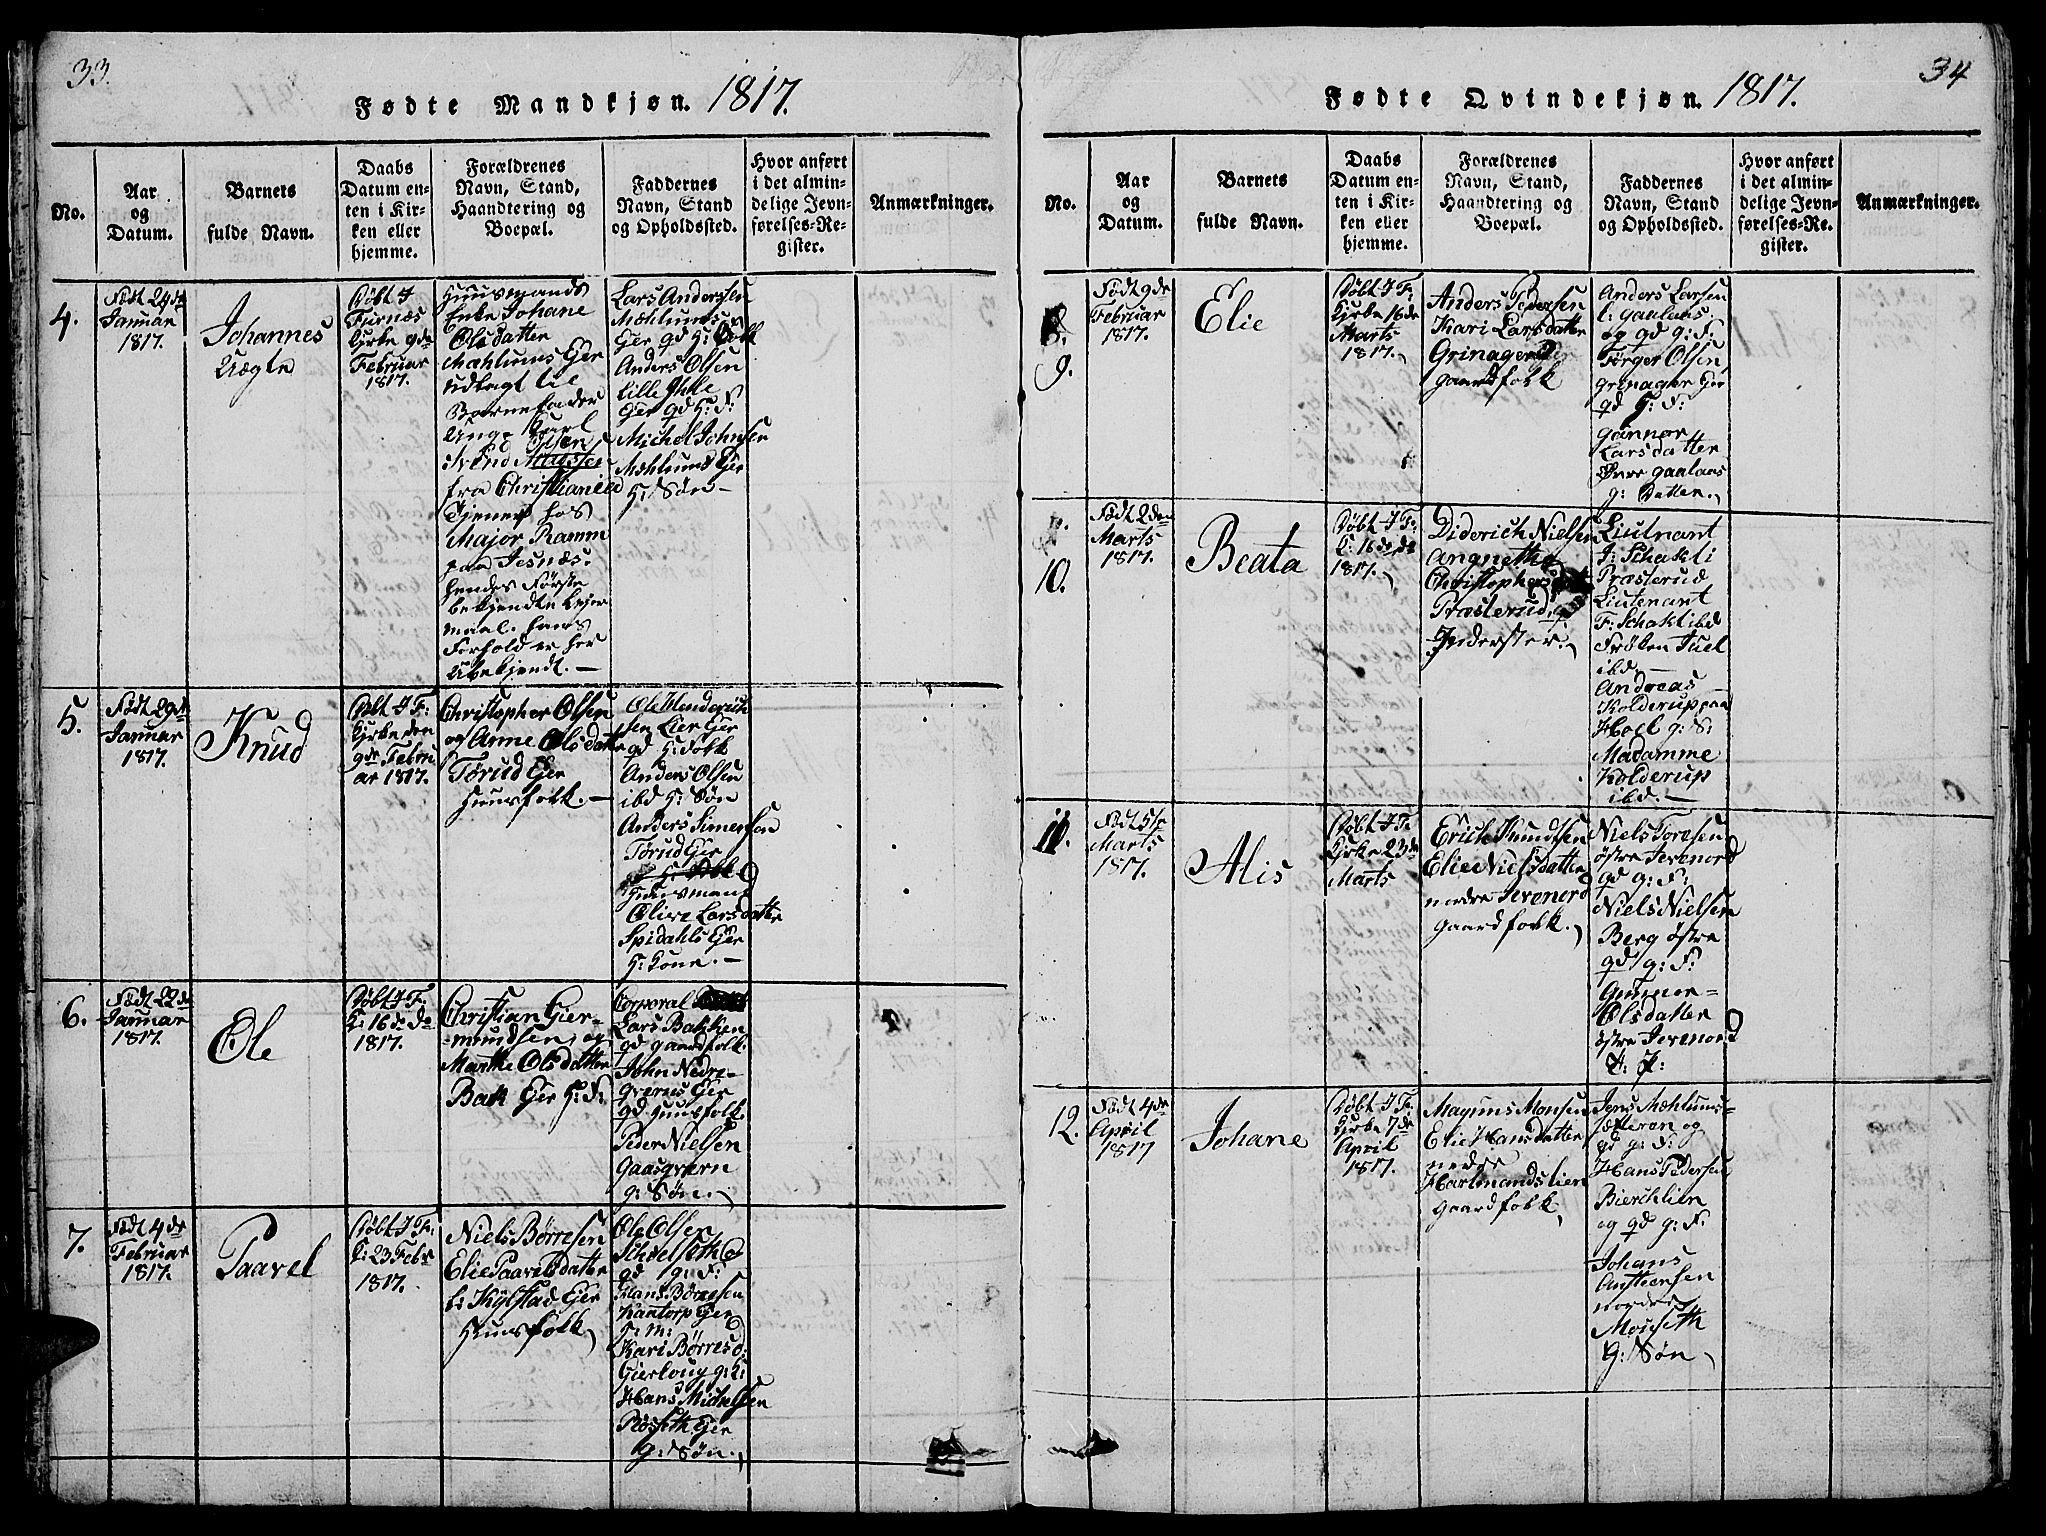 33.
Fødte Mandkjøn. 1817.
No.
Aar
og
Datum.
Barnets
fulde Navn.
Daabs
Datum en-
ten i Kir-
ken eller
hjemme.
Forældrenes
Navn, Stand,
Haandtering og
Boepæl.
Faddernes
Navn, Stand
og Opholdssted.
Hvor anført
i det almin-
delige Jevn-
førelses-Re-
gister.
Anmærkninger.
4.
Født 24de
Januar
1817.
Johannes
Uægte
Døbt I
Furnæs
Kirke 9de
Februar
1817.
Huusmands
Enke Johane
Olsdatter
Mæhlums Eier
udlagt til
Barnefader
Ung Karl
Olsen
fra Christiania
Tjener hos
Major Ramm
paa Jesnæs.
hendes Første
bekjendte Leier
maal. hans
Forhold er her
Ubekjendt. —
Lars Andersen
Mæhlums
Eier qd H: Folk
Anders Olsen
Lille Ihle
Eier qd H: F:
Michel Johnsen
Mæhlums Eier
H: Søn —
5.
Født 29de
Januar
1817.
Knud
Døbt I F:
Kirke den
9de Febru
ar 1817.
Christopher Olsen
og Anne Olsdatter
Tørud Eier
Huusfolk. —
Ole Hendrich
sen Lier Eier
qd H: Folk
Anders Olsen
ibd H: Søn
Anders Simensen
Tørud Eier
Huusmand
Olive Larsdatter
Spidahls Eier
H: Kone. —
6.
Født 22de
Januar
1817.
Ole
Døbt I F:
K: 16de do
1817.
Christian Gier-
mundsen og
Marthe Olsdatter
Bak Eier H: F:
Corporal
Lars Bakken
qd gaardfolk.
John Nedre-
Qværnes Eier
qd Huusfolk
Peder Nielsen
Gaasqværn
g: Søn.
7.
Født 4de
Februar
1817.
Paavel
Døbt I F:
K: 23 Febr
1817.
Niels Børresen
Elie Paavelsdatter
L: Kylstad Eier
Huusfolk
Ole Olsen
Schielseth
qd g: F:
Hans Børresen
Kantorp Eier
H: M:
Kari Børresd:
Gierloug g: K:
Hans Michelsen
Røsseth Eier
g: Søn.
34
Fødte Qvindekjøn. 1817.
No.
Aar
og
Datum.
Barnets
fulde Navn.
Daabs
Datum en-
ten i Kir-
ken eller
hjemme.
Forældrenes
Navn, Stand,
Haandtering og
Boepæl.
Faddernes
Navn, Stand
og Opholdssted.
Hvor anført
i det almin-
delige Jevn-
førelses-Re-
gister.
Anmærkninger.
8.
9.
Født 9de
Februar
1817.
Elie
Døbt I F:
Kirke 16de
Marts
1817.
Anders Pedersen
Kari Larsdatter
Grinager
gaardfolk
Anders Larsen
l: gaalaas
og qd g: F:
Tørger Olsen
Grinager Eier
qd H: F:
Gunnor
Larsdatter
Øvre gaalaas
g: Datter.
10.
Født 2den
Marts
1817.
Beata
Døbt I F:
K: 16de do
1817.
Diderich Nielsen
Angnethe
Præsterud,
Inderster.
Liutnant
I: Schakti
Præsterud
Liutenant
F: Schakti ibd
Frøken Juel
ibd. —
Andreas
Kolderup paa
Hoel g: S:
Madamme
Kolderup
ibd. —
11.
Født 5te
Marts
1817.
Alis
Døbt I F:
Kirke 23de
Marts
Erich Knudsen
Elie Nielsdatter
nordre Jevenord
gaardfolk.
Niels Toresen
østre Jevenord
qd g: F:
Niels Nielsen
Berg østre
qd g: F:
Gunnor
Olsdatter
østre Jevenord
12.
Født 4de
April
1817
Johane
Døbt I F:
Kirke 7de
April
1817.
Magnus Monsen
Elie Hansdatter
nedre
Hartmandslien
gaardfolk
Jens Mæhlums-
Sæteren og
qd g: F:
Hans Pedersen
Bierchlien
og qd g: F:
Johans
nordre
Mouseth
g: Søn